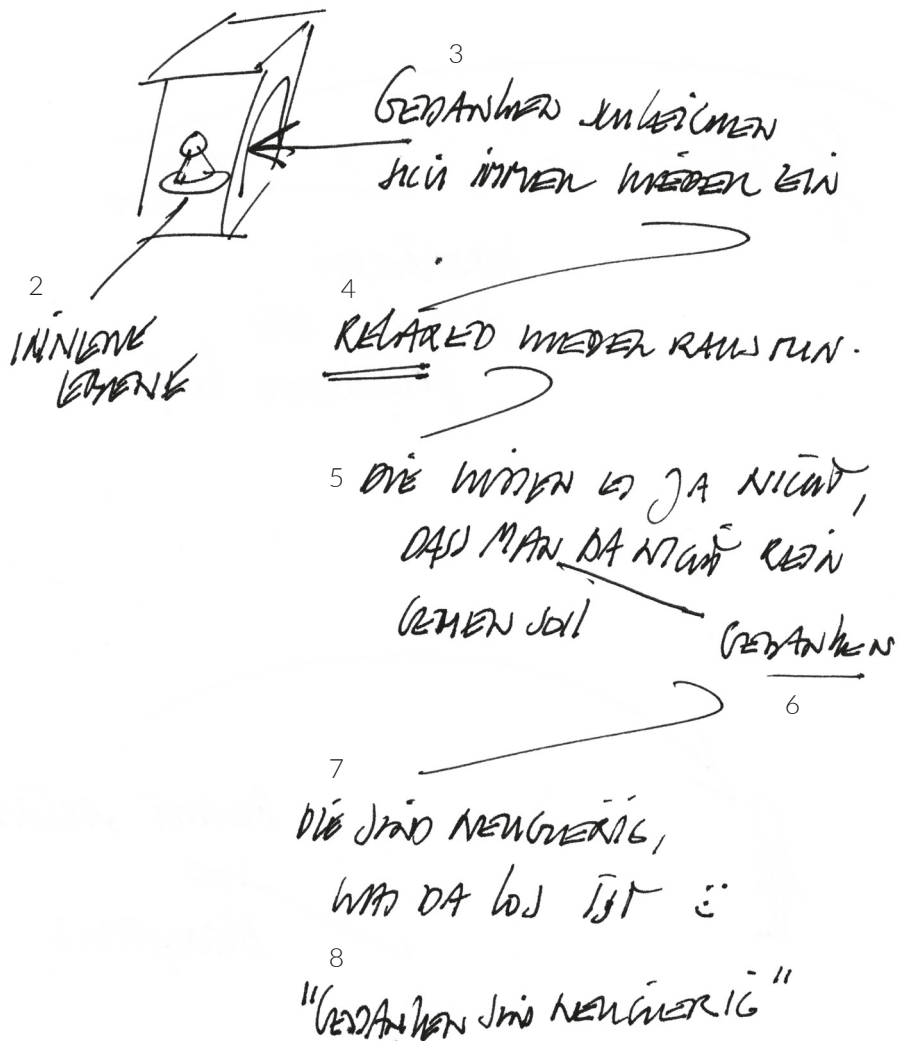 3
GEDANKEN SCHLEICHEN
SICH IMMER WIEDER EIN
2
INNERE
EBENE
4
RELAXED WIEDER RAUS TUN.
5
DIE WISSEN ES JA NICHT,
DASS MAN DA NICHT REIN
GEHEN SOLL
GEDANKEN
6
7
DIE SIND NEUGIERIG,
WAS DA LOS IST :)
8
"GEDANKEN SIND NEUGIERIG"